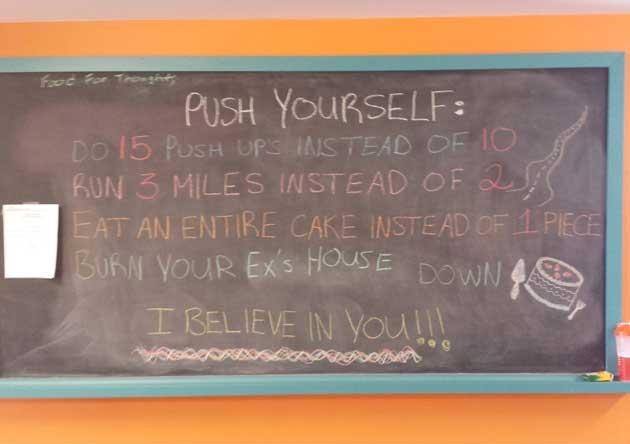 Food For Thoughts
PUSH YOURSELF:
DO 15 PUSH UPS INSTEAD OF 10
RUN 3 MILES INSTEAD OF 2
EAT AN ENTIRE CAKE INSTEAD OF 1 PIECE
BURN YOUR Ex's HOUSE DOWN
I BELIEVE IN YOU!!!